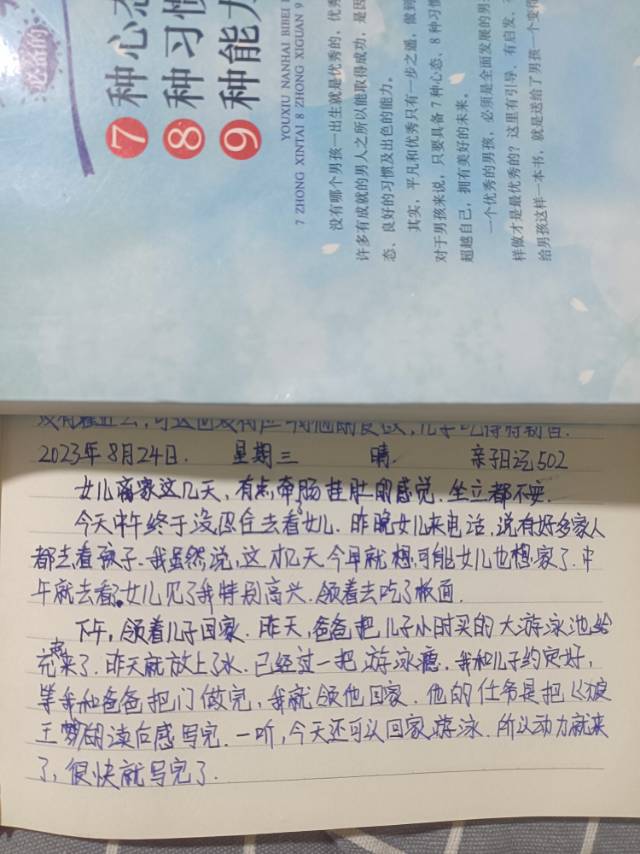 必备的
7种心态
8种习惯
9种能力
YOUXIU NANHAI BIBEI
7 ZHONG XINTAI 8 ZHONG XIGUAN 9
没有哪个男孩一出生就是优秀的，优秀
许多有成就的男人之所以能取得成功，是因
态、良好的习惯及出色的能力。
其实，平凡和优秀只有一步之遥，做到
对于男孩来说，只要具备7种心态、8种习惯
超越自己，拥有美好的未来。
一个优秀的男孩，必须是全面发展的男
样做才是最优秀的？这里有引导，有启发，
给男孩这样一本书，就是送给了男孩一个变
2023年8月24日. 星期三 晴. 亲子日记502
女儿离家这几天，有点牵肠挂肚的感觉.坐立都不安.
今天中午终于没忍住去看女儿.昨晚女儿来电话，说有好多家人
都去看孩子.我虽然说，这才几天.今早就想，可能女儿也想家了.中
午就去看了.女儿见了我特别高兴.领着去吃了板面.
下午，领着儿子回家.昨天，爸爸把儿子小时买的大游泳池给
充起来了.昨天就放上了水.已经过一把游泳瘾.我和儿子约定好，
等我和爸爸把门做完，我就领他回家.他的任务是把《
王梦》的读后感写完.一听，今天还可以回家游泳.所以动力就来
了，很快就写完了.